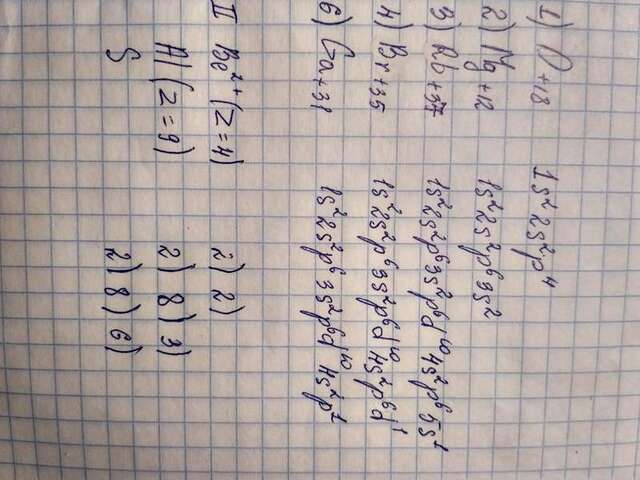 1) O +18 1s²2s²p⁴
2) Mg +12 1s²2s²p⁶3s²
3) Rb +37 1s²2s²p⁶3s²p⁶d¹⁰4s²p⁶5s¹
4) Br +35 1s²2s²p⁶3s²p⁶d¹⁰4s²p⁶d¹
6) Ga +31 1s²2s²p⁶3s²p⁶d¹⁰4s²p¹
II Be²+ (Z=4) 2) 2)
Al (Z=9) 2) 8) 3)
S 2) 8) 6)